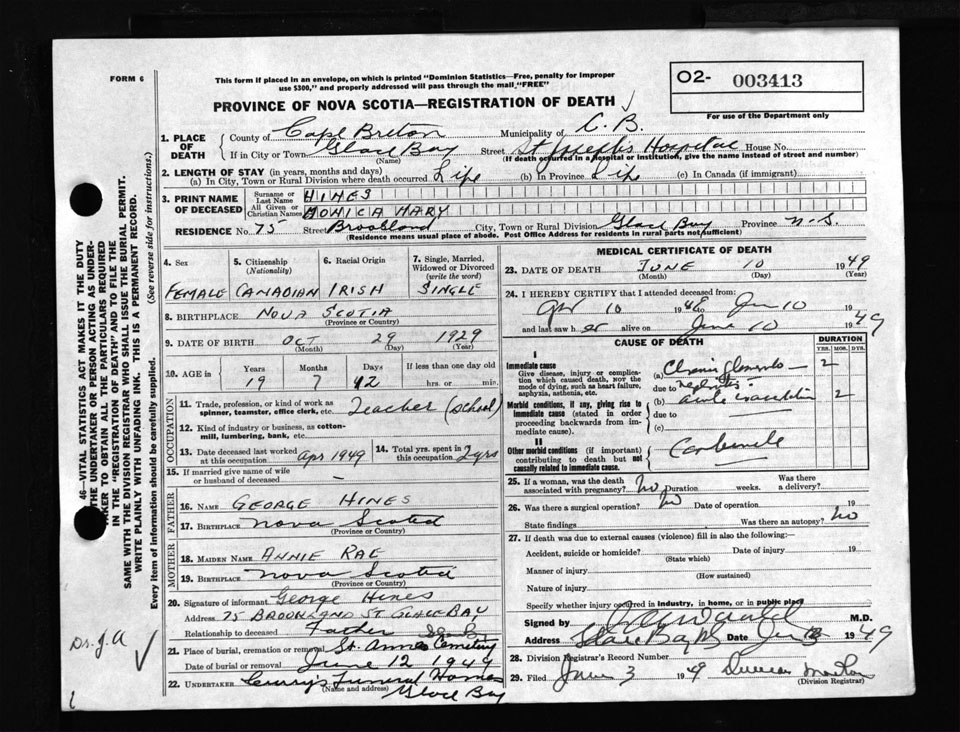 FORM 6
This form if placed in an envelope, on which is printed "Dominion Statistics—Free, penalty for improper
use $300," and properly addressed will pass through the mail "FREE"
PROVINCE OF NOVA SCOTIA—REGISTRATION OF DEATH
O2- 003413
For use of the Department only
46—VITAL STATISTICS ACT MAKES IT THE DUTY
OF THE UNDERTAKER OR PERSON ACTING AS UNDER-
TAKER TO OBTAIN ALL THE PARTICULARS REQUIRED
IN THE "REGISTRATION OF DEATH" AND TO FILE THE
SAME WITH THE DIVISION REGISTRAR WHO SHALL ISSUE THE BURIAL PERMIT.
WRITE PLAINLY WITH UNFADING INK. THIS IS A PERMANENT RECORD.
Every item of information should be carefully supplied. (See reverse side for instructions.)
1. PLACE OF DEATH
County of Cape Breton Municipality of C. B.
If in City or Town Glace Bay Street St Joseph's Hospital House No.
(Name) (If death occurred in a hospital or institution, give the name instead of street and number)
2. LENGTH OF STAY (in years, months and days)
(a) In City, Town or Rural Division where death occurred Life (b) in Province Life (c) In Canada (if immigrant)
3. PRINT NAME OF DECEASED
Surname or Last Name HINES
All Given or Christian Names MONICA MARY
RESIDENCE No. 75 Street Brookland City, Town or Rural Division Glace Bay Province N.S.
(Residence means usual place of abode. Post Office Address for residents in rural parts not sufficient)
4. Sex FEMALE
5. Citizenship (Nationality) CANADIAN
6. Racial Origin IRISH
7. Single, Married, Widowed or Divorced (write the word) SINGLE
8. BIRTHPLACE NOVA SCOTIA
(Province or Country)
9. DATE OF BIRTH OCT 29 1929
(Month) (Day) (Year)
10. AGE in Years Months Days If less than one day old
19 7 12 hrs. or min.
OCCUPATION
11. Trade, profession, or kind of work as spinner, teamster, office clerk, etc. Teacher (school)
12. Kind of industry or business, as cotton-mill, lumbering, bank, etc.
13. Date deceased last worked at this occupation Apr 1949
14. Total yrs. spent in this occupation 2 yrs
15. If married give name of wife or husband of deceased —
FATHER
16. NAME GEORGE HINES
17. BIRTHPLACE Nova Scotia
(Province or Country)
MOTHER
18. MAIDEN NAME ANNIE RAE
19. BIRTHPLACE Nova Scotia
(Province or Country)
20. Signature of informant George Hines
Address 75 BROOKLAND ST GLACE BAY
Relationship to deceased Father
21. Place of burial, cremation or removal St. Anne's Cemetery
Date of burial or removal June 12 1949
22. UNDERTAKER Curry's Funeral Home
(Name and address) Glace Bay
MEDICAL CERTIFICATE OF DEATH
23. DATE OF DEATH JUNE 10 1949
(Month) (Day) (Year)
24. I HEREBY CERTIFY that I attended deceased from:
10 1949 to Jun 10 19
and last saw her alive on June 10 1949
CAUSE OF DEATH
DURATION
YRS. MOS. DYS.
I
Immediate cause
Give disease, injury or complication which caused death, nor the mode of dying, such as heart failure, asphyxia, asthenia, etc.
(a) Chronic 2
due to Nephritis
Morbid conditions, if any, giving rise to immediate cause (stated in order proceeding backwards from immediate cause).
(b) acute 2
due to
(c)
II
Other morbid conditions (if important) contributing to death but not causally related to immediate cause.
Carbuncle
25. If a woman, was the death associated with pregnancy? no Duration weeks. Was there a delivery?
26. Was there a surgical operation? no Date of operation 19
State findings Was there an autopsy? no
27. If death was due to external causes (violence) fill in also the following:
Accident, suicide or homicide? Date of injury 19
(State which)
Manner of injury
(How sustained)
Nature of injury
Specify whether injury occurred in industry, in home, or in public place
Signed by M.D.
Address Glace Bay Date 1949
28. Division Registrar's Record Number
29. Filed June 3 1949 Duncan
(Division Registrar)
Dr. J. A